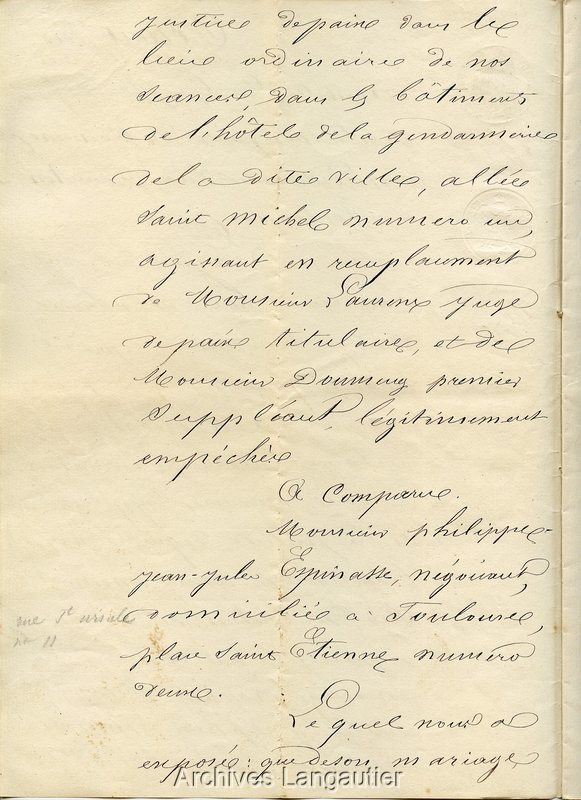 justice de paix dans le
lieu ordinaire de nos
séances, dans les bâtiments
de l'hôtel de la gendarmerie
de la dite ville, allée
Saint Michel numéro un,
agissant en remplacement
de Monsieur Laurens juge
de paix titulaire, et de
Monsieur premier
suppléant, légitimement
empêchés
A Comparu.
Monsieur philippe-
jean-jules Espinasse, négociant,
domicilié à Toulouse,
place Saint Etienne numéro
deux.
rue Ste ursule
no 11
Le quel nous a
exposé : que de son mariage
Archives Langautier